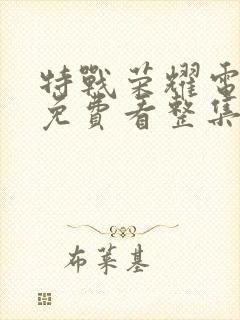 特戰荣耀電
免費看整集
布萊基